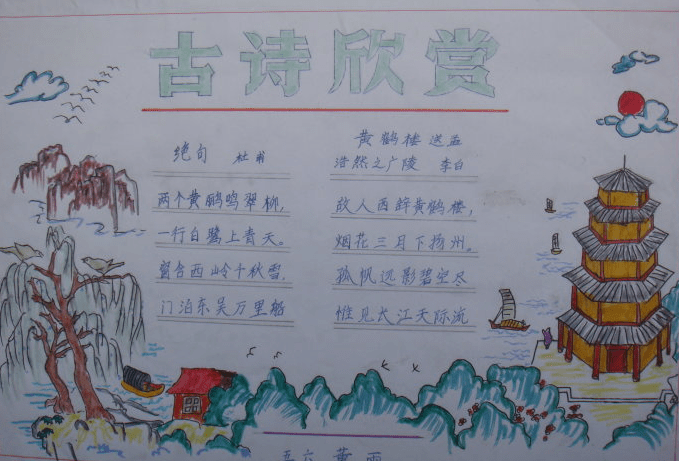 古诗欣赏
绝句 杜甫
两个黄鹂鸣翠柳,
一行白鹭上青天。
窗含西岭千秋雪,
门泊东吴万里船
黄鹤楼送孟
浩然之广陵 李白
故人西辞黄鹤楼,
烟花三月下扬州。
孤帆远影碧空尽
惟见长江天际流
五六 黄雨